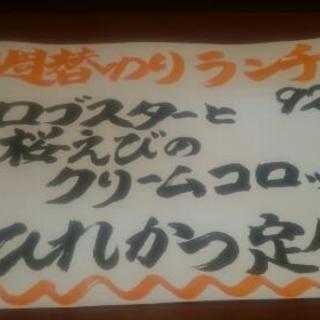 週替のりランチ
ロブスターと 92
桜えびの
クリームコロッ
ひれかつ定